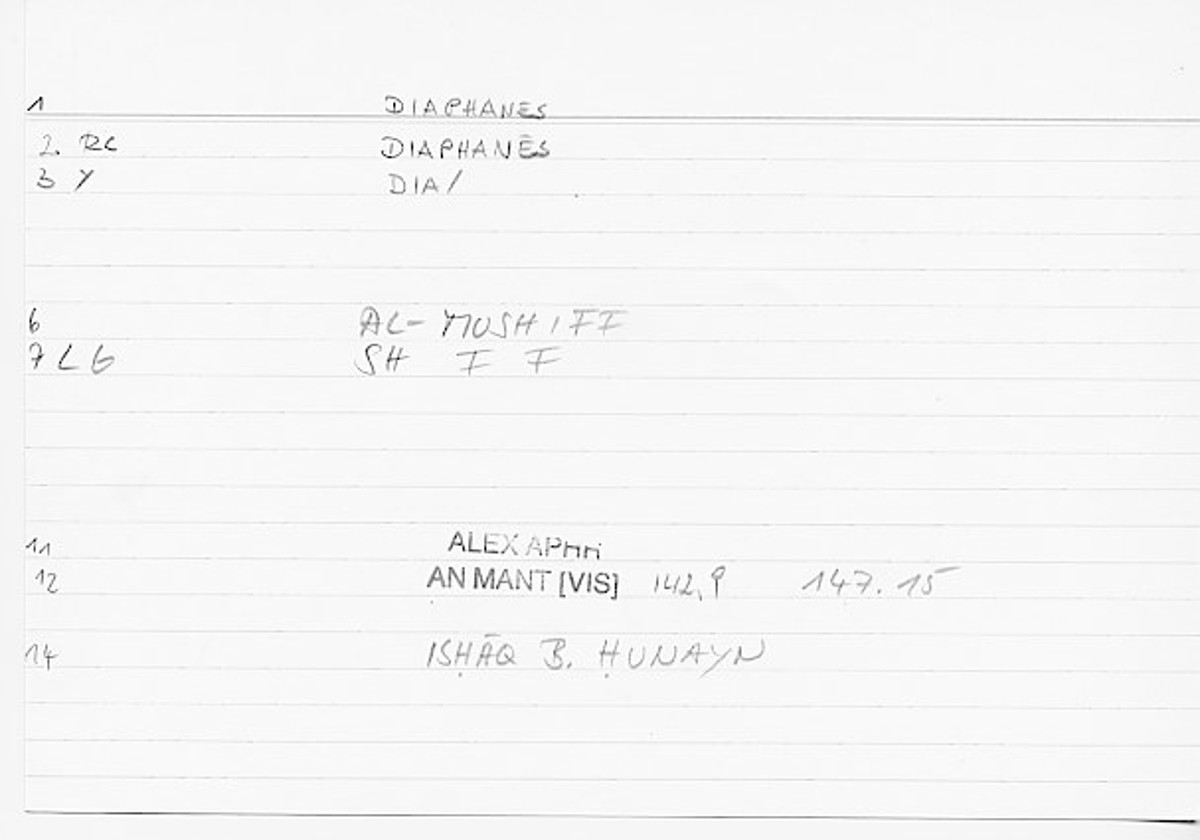 1 DIAPHANES
2. RC DIAPHANĒS
3 Y DIA/
6 AL-MUSHIFF
7 LG SH F F
11 ALEX APHR
12 AN MANT [VIS] 142,9 147.15
14 ISḤĀQ B. ḤUNAYN